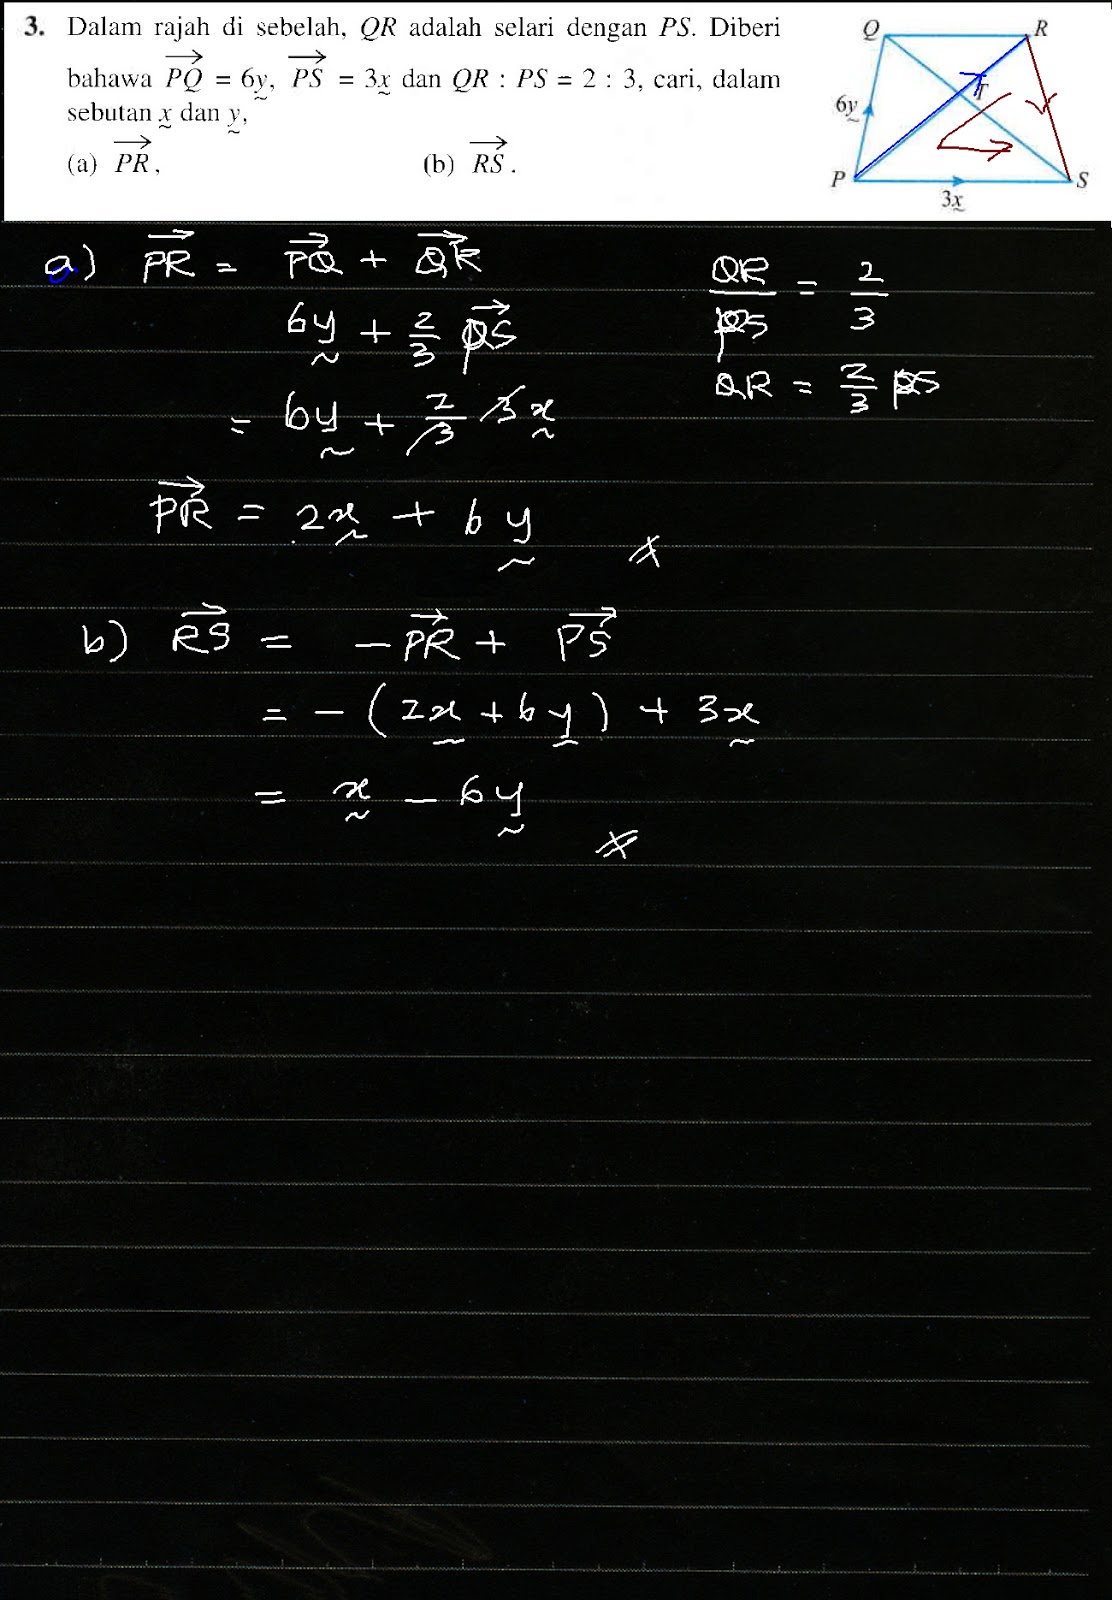 3. Dalam rajah di sebelah, QR adalah selari dengan PS. Diberi
bahawa PQ = 6y, PS = 3x dan QR : PS = 2 : 3, cari, dalam
sebutan x dan y,
(a) PR, (b) RS.
Q R
6y T
P S
3x
a) PR = PQ + QR
6y + 2/3 PS
= 6y + 2/3 3x
PR = 2x + 6y
QR/PS = 2/3
QR = 2/3 PS
b) RS = -PR + PS
= -(2x + 6y) + 3x
= x - 6y